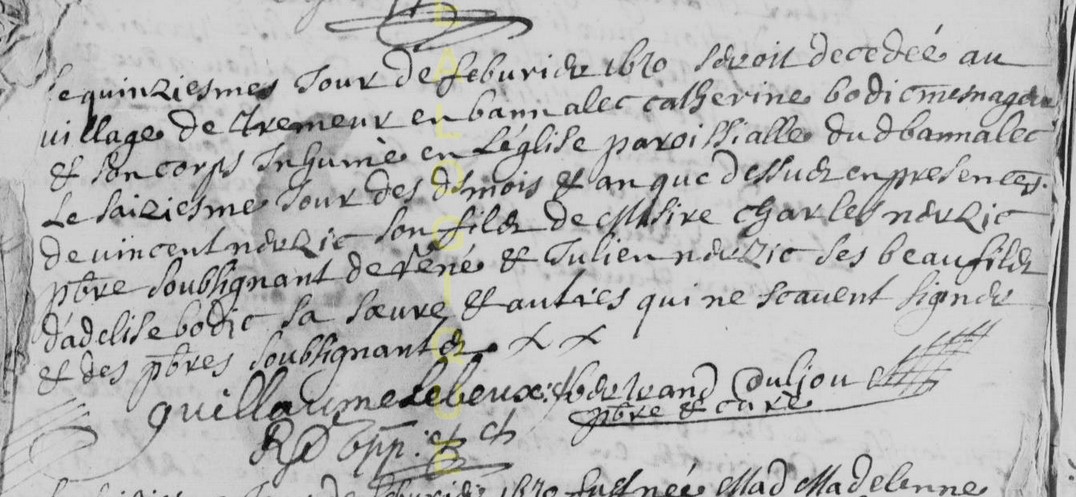 Le quinziesme Jour de feburier 1670 seroit decedeé au
village de tremeur en bannalec catherine bodic mesnagere
& son corps Inhumé en L'église paroissialle dud bannalec
Le saiziesme Jour des dsmois & an que dessus en presences
de vincent nerzic son fils de Missire charles nerzic
pbre soubsignant de réné & Julien nerzic ses beaufils
d'adelise bodic sa soeure & autres qui ne scauent signer
& des pbres soubsignants
guillaume Lebeux
pbre & curé
1670 Mad Madelenne